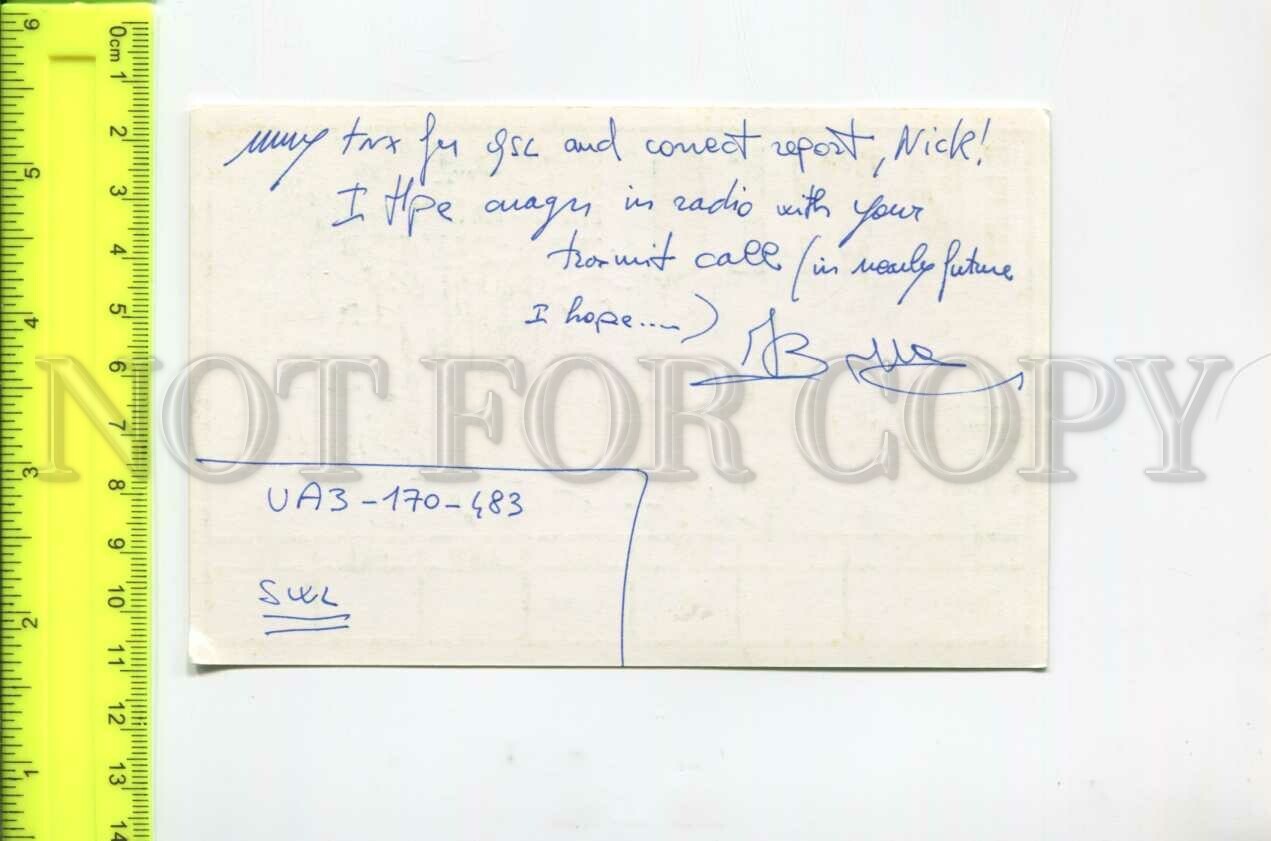 many tnx for QSL and correct report, Nick!
I Hpe in radio with your
call (in nearly future
I hope....)
UA3-170-483
SWL
NOT FOR COPY
0cm 1 2 3 4 5 6 7 8 9 10 11 12 13 14
6 5 4 3 2 1